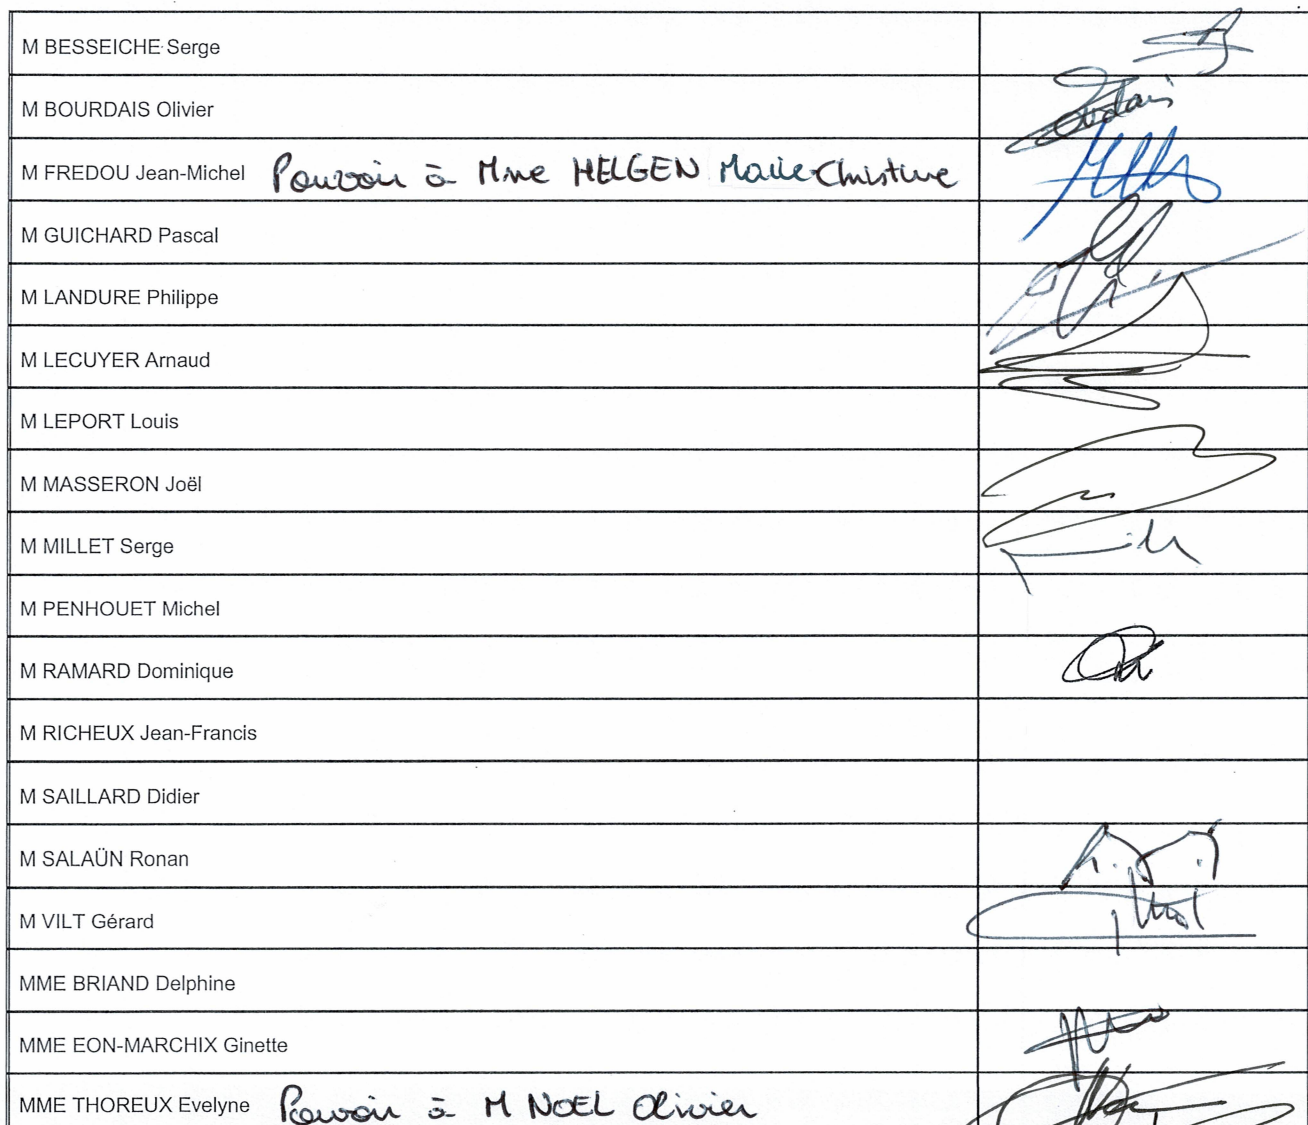 M BESSEICHE Serge
M BOURDAIS Olivier
M FREDOU Jean-Michel Pouvoir à Mme HELGEN Marie-Christine
M GUICHARD Pascal
M LANDURE Philippe
M LECUYER Arnaud
M LEPORT Louis
M MASSERON Joël
M MILLET Serge
M PENHOUET Michel
M RAMARD Dominique
M RICHEUX Jean-Francis
M SAILLARD Didier
M SALAÜN Ronan
M VILT Gérard
MME BRIAND Delphine
MME EON-MARCHIX Ginette
MME THOREUX Evelyne Pouvoir à M NOEL Olivier